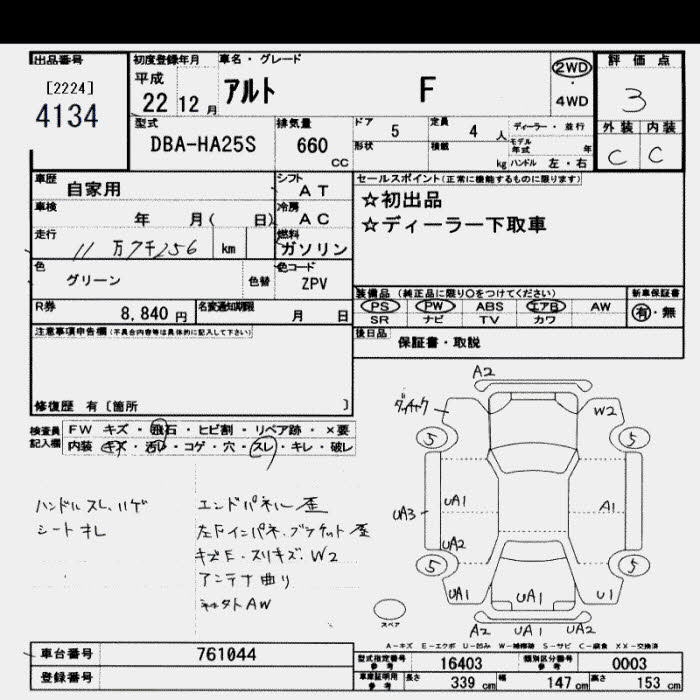 出品番号
[2224]
4134
初度登録年月
平成
22 12 月
車名・グレード
アルト F
2WD
・
4WD
評価点
3
外装 内装
C C
型式
DBA-HA25S
排気量
660
CC
ドア 5
定員 4 人
形状
積載 kg
ディーラー・並行
モデル年式 年
ハンドル 左・右
車歴
自家用
シフト
AT
車検
年 月( 日)
冷房
AC
走行
11 万7千256 km
燃料
ガソリン
色
グリーン
色替
色コード
ZPV
R券
8,840 円
名変通知期限
月 日
セールスポイント(正常に機能するものに限ります)
☆初出品
☆ディーラー下取車
装備品 (純正品に限り〇をつけてください)
PS PW ABS エアB AW
SR ナビ TV カワ
新車保証書
有・無
後日品
保証書・取説
注意事項申告欄(不具合内容等は具体的に記入して下さい)
修復歴 有〔箇所 〕
検査員
記入欄
FW キズ・飛石・ヒビ割・リペア跡・×要
内装 キズ・汚レ・コゲ・穴・スレ・キレ・破レ
ハンドルスレ、ハゲ
エンドパネル歪
キズE・スリキズ・W2
アンテナ曲り
A2
W2
5
5
UA1
UA3
UA2
A1
5
5
UA1
UA1
U1
A2 UA1 UA2
スペア
A-キズ E-エクボ U-凹み W-補修跡 S-サビ C-腐食 XX-交換済
車台番号
761044
登録番号
型式指定番号
参考
16403
類別区分番号
参考
0003
車庫証明用
参考
長さ 339 cm
幅 147 cm
高さ 153 cm